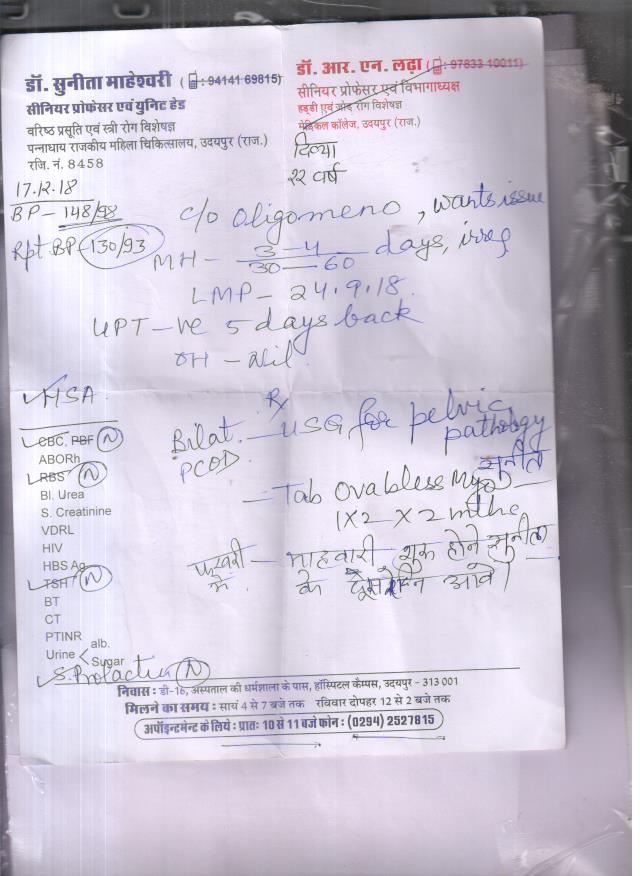 डॉ. सुनीता माहेश्वरी ( : 94141 69815)
सीनियर प्रोफेसर एवं युनिट हेड
वरिष्ठ प्रसूति एवं स्त्री रोग विशेषज्ञ
पन्नाधाय राजकीय महिला चिकित्सालय, उदयपुर (राज.)
रजि. नं. 8458
डॉ. आर. एन. लढ़ा ( : 97833 10011)
सीनियर प्रोफेसर एवं विभागाध्यक्ष
हड्डी एवं जोड़ रोग विशेषज्ञ
मेडिकल कॉलेज, उदयपुर (राज.)
दिव्या
२२ वर्ष
17.12.18
BP - 148/98
Rpt BP - 130/93
c/o oligomeno, wants issue
MH - 3-4/30-60 days, irreg
LMP - 24.9.18.
UPT -ve 5 days back
OH - Nil.
HSA
CBC, PBF N
ABORh
RBS N
Bl. Urea
S. Creatinine
VDRL
HIV
HBS Ag
TSH N
BT
CT
PTINR
Urine < alb.
Sugar
S. Prolactin N
Rx
Bilat. PCOD
- USG for pelvic pathology
सुनीता
- Tab Ovabless Myo
1 X 2 X 2 mths
फरवरी में - माहवारी शुरू होने
के दूसरे दिन आवे।
निवास : डी-16, अस्पताल की धर्मशाला के पास, हॉस्पिटल कैम्पस, उदयपुर - 313 001
मिलने का समय : सायं 4 से 7 बजे तक रविवार दोपहर 12 से 2 बजे तक
अपॉइन्टमेन्ट के लिये : प्रातः 10 से 11 बजे फोन : (0294) 2527815